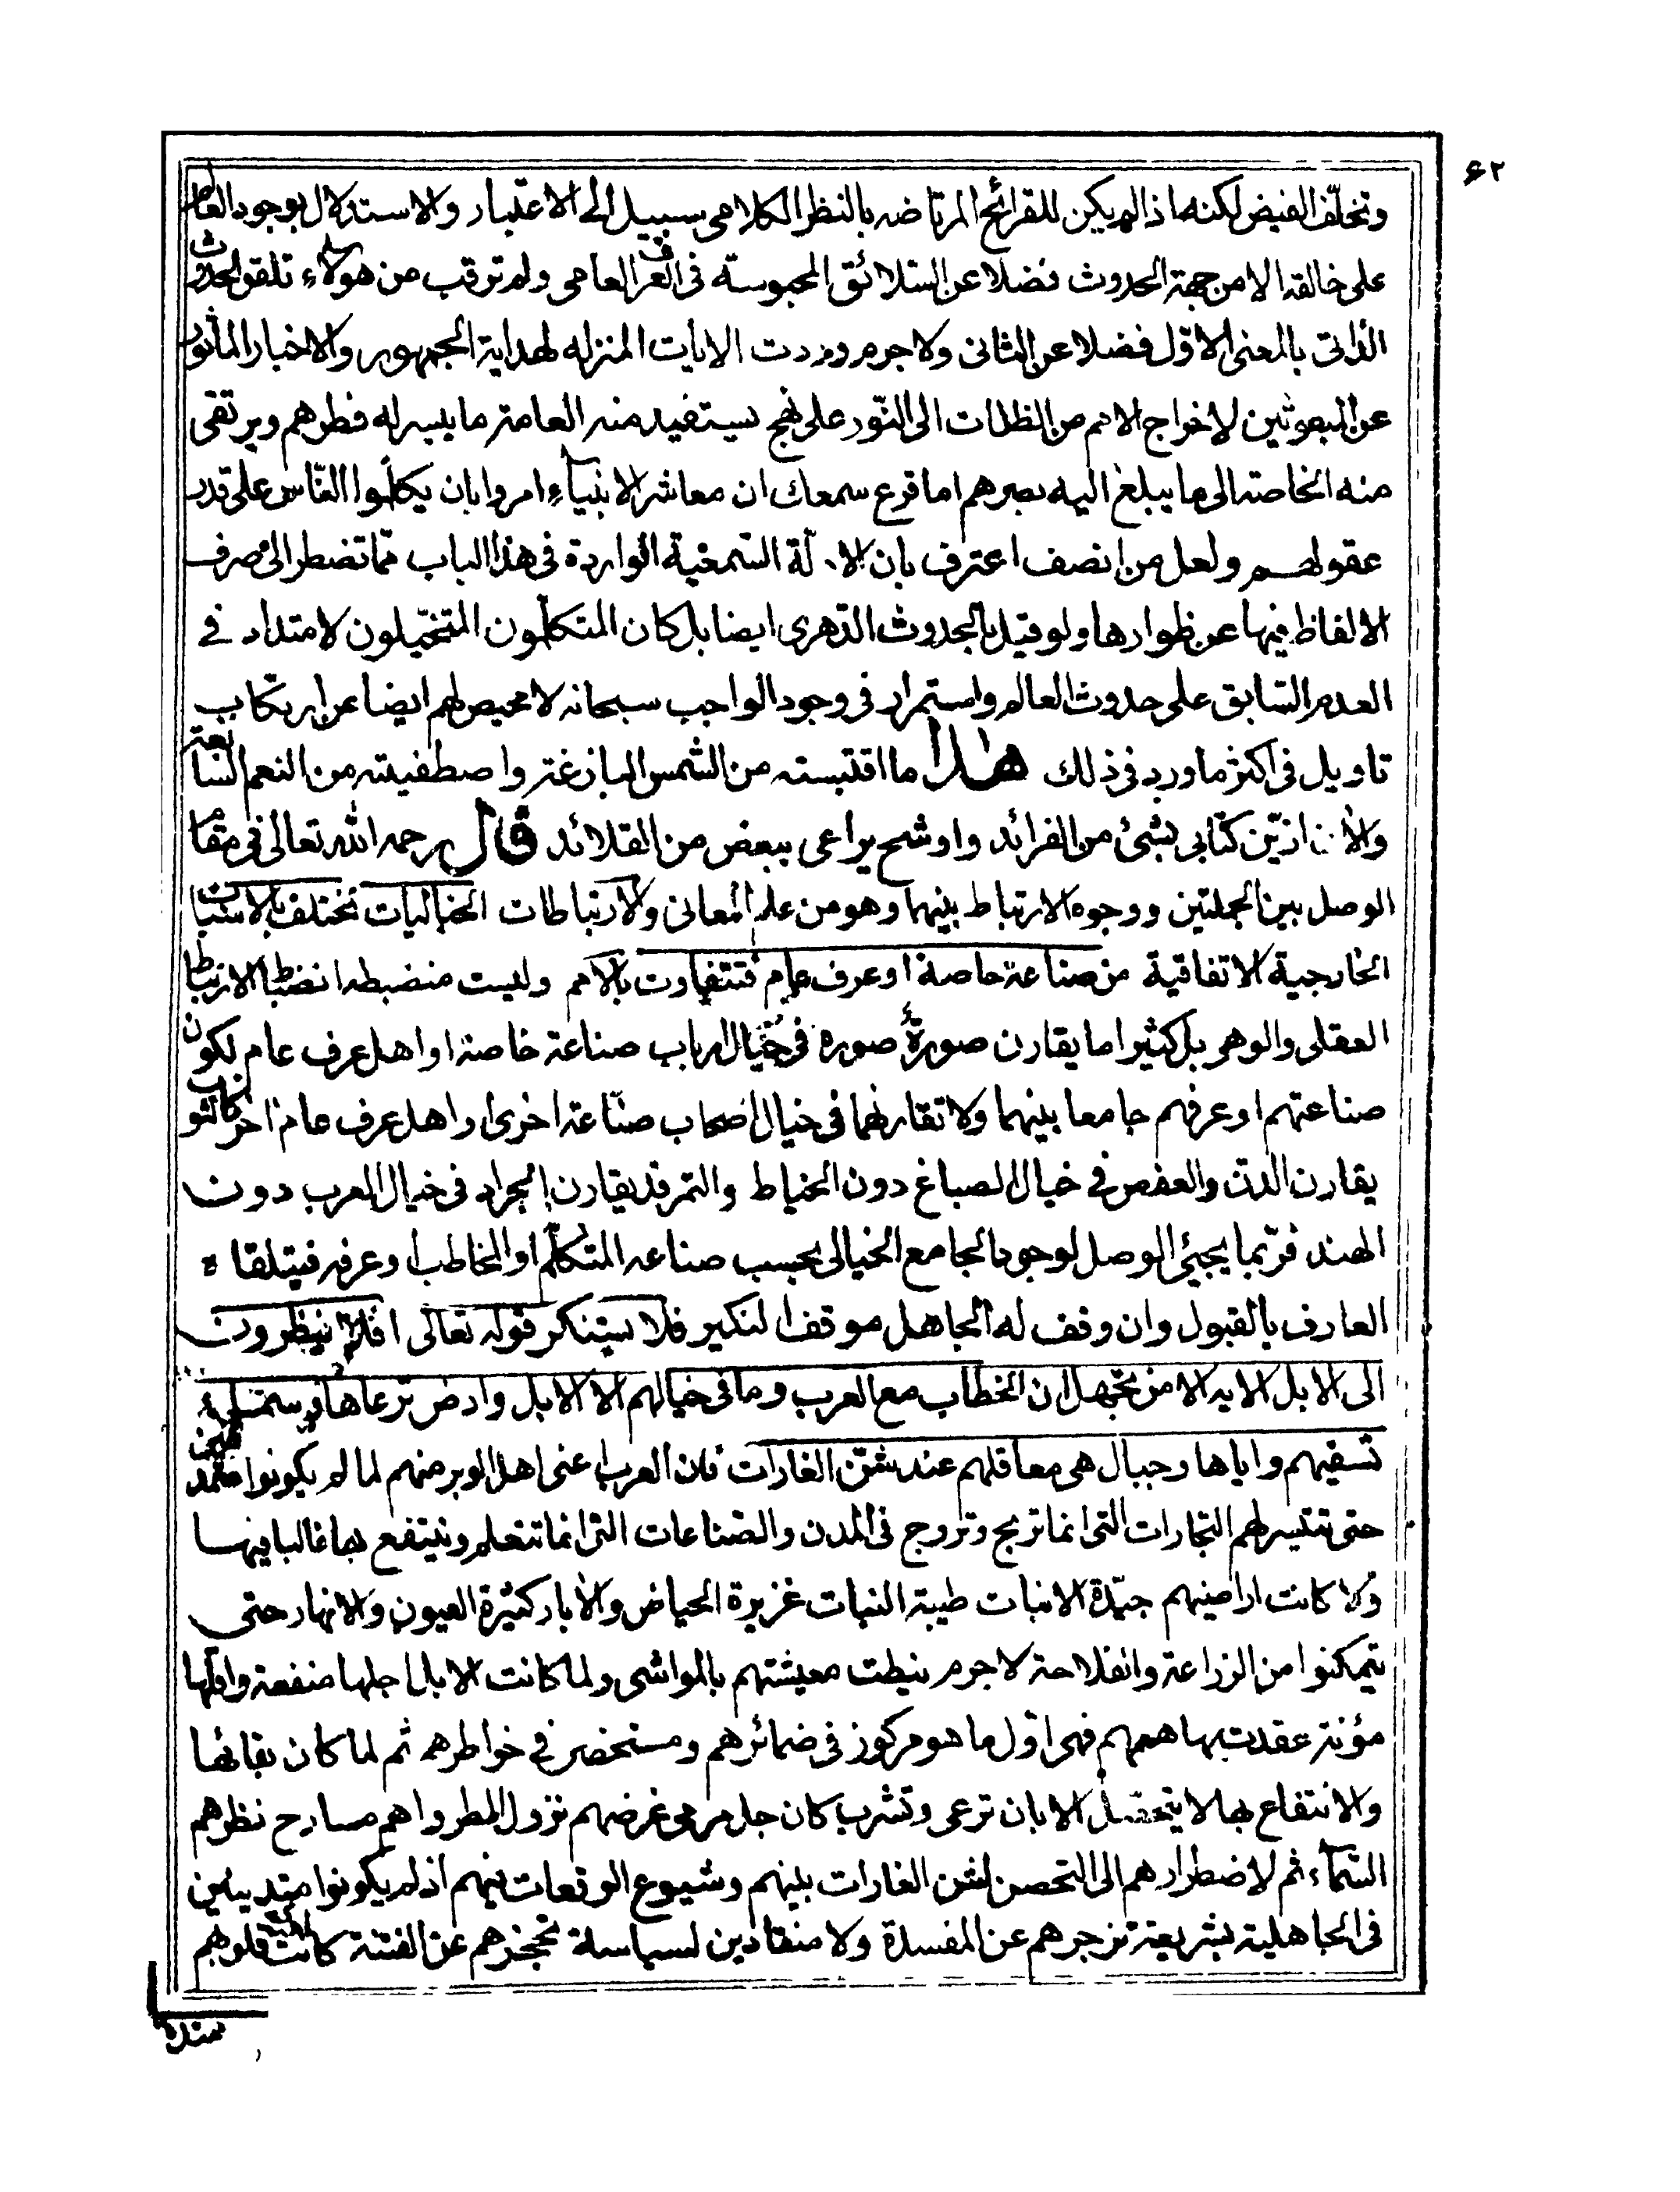 ٦٢
وتخلّف الفيض لكنه اذا لم يكن للقرائح المرتاضه بالنظر الكلامى سبيل الى الاعتبار والاستدلال بوجود العالم
على خالقه الا من جهة الحدوث فضلا عن السلائق المحبوسته فى العرف العامى ولم ترقب من هولاء تلقو الحدوث
الذاتى بالمعنى الاوّل فضلا عن الثانى ولا جرم وردت الايات المنزله لهداية الجمهور والاخبار الماثور
عن المبعوثين لاخراج الامم من الظلمات الى النّور على نهج يستفيد منه العامة ما يسر له فطرهم ويرتقى
منه الخاصة الى ما يبلغ اليه بصرهم اما قرع سمعك ان معاشر الانبياء امروا بان يكلّموا النّاس على قدر
عقولهم ولعل من انصف اعترف بان الادلّة السّمعية الواردة فى هذا الباب ممّا تضطر الى صرف
الالفاظ فيها عن ظواهرها ولو قيل بالحدوث الدّهرى ايضا بل كان المتكلّمون المتخيّلون لامتداد فے
العدم السّابق على حدوث العالم واستمرار فى وجود الواجب سبحانه لا محيص لهم ايضا عن ارتكاب
تاويل فى اكثر ما ورد فى ذلك هذا ما اقتبسته من الشمس البازغة واصطفيته من النعم السّابغة
والان ازيّن كتابى بشئ من الفرائد واوشح يراعى ببعض من القلائد قال رحمه الله تعالى فى مقام
الوصل بين الجملتين ووجوه الارتباط بينهما وهو من علم المعانى والارتباطات الخياليات تختلف بالاسباب
الخارجية الاتفاقية من صناعة خاصة اوعرف عام فتتفاوت بالامم وليست منضبطه انضباط الارتباط
العقلى والوهمى بل كثيرا ما يقارن صورة صوره فى خيال ارباب صناعة خاصة او اهل عرف عام لكون
صناعتهم اوعرفهم جامعا بينهما ولا تقارنها فى خيال اصحاب صنّاعة اخرى او اهل عرف عام اخر كالثوب
يقارن الدنّ والعفص فے خيال الصباغ دون الخياط والتمر قد يقارن الجراد فى خيال العرب دون
الهند فربّما يجيئ الوصل لوجود الجامع الخيالى بحسب صناعه المتكلّم او المخاطب او عرفه فيتلقاه
العارف بالقبول وان وقف له الجاهل موقف النكير فلا يستنكر قوله تعالى افلا ينظرون
الى الابل الايه الا من يجهل ان الخطاب مع العرب وما فى خيالهم الا الابل وارض ترعاها وسماء
تسقيهم واياها وجبال هى معاقلهم عند شنّ الغارات فان العرب اعنى اهل الوبر منهم لما لم يكونوا متمدنين
حتى تتيسر لهم التجارات التى انما تربح وتروج فى المدن والصّناعات التى انما تتعلم وينتفع بها غالبا فيها
ولا كانت اراضيهم جيّدة الانبات طيبة النبات غزيرة الحياض والابار كثيرة العيون والانهار حتى
يتمكنوا من الزراعة والفلاحة لا جرم نيطت معيشتهم بالمواشى ولما كانت الابل اجلها منفعة واقلّها
مؤنة عقدت بها هممهم فهى اوّل ما هو مركوز فى ضمائرهم ومستحضر فے خواطرهم ثم لما كان بقائها
والانتفاع بها لا يتحصّل الا بان ترعى وتشرب كان جل مرمى غرضهم نزول المطر واهم مسارح نظرهم
السّماء ثم لاضطرارهم الى التحصن لشن الغارات بينهم وشيوع الوقعات فيهم اذ لم يكونوا متدينين
فى الجاهلية بشريعة تزجرهم عن المفسدة ولا منقادين لسياسلة تحجزهم عن الفتنة كانت قلوبهم